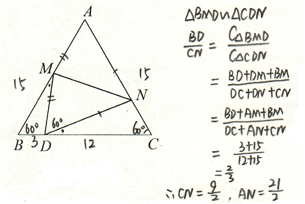 A
15
M
15
N
60°
60°
60°
B
3
D
12
C
△BMD∽△CDN
BD/CN = C△BMD/C△CDN
= BD+DM+BM/DC+DN+CN
= BD+AM+BM/DC+AN+CN
= 3+15/12+15
= 2/3
∴CN = 9/2, AN = 21/2